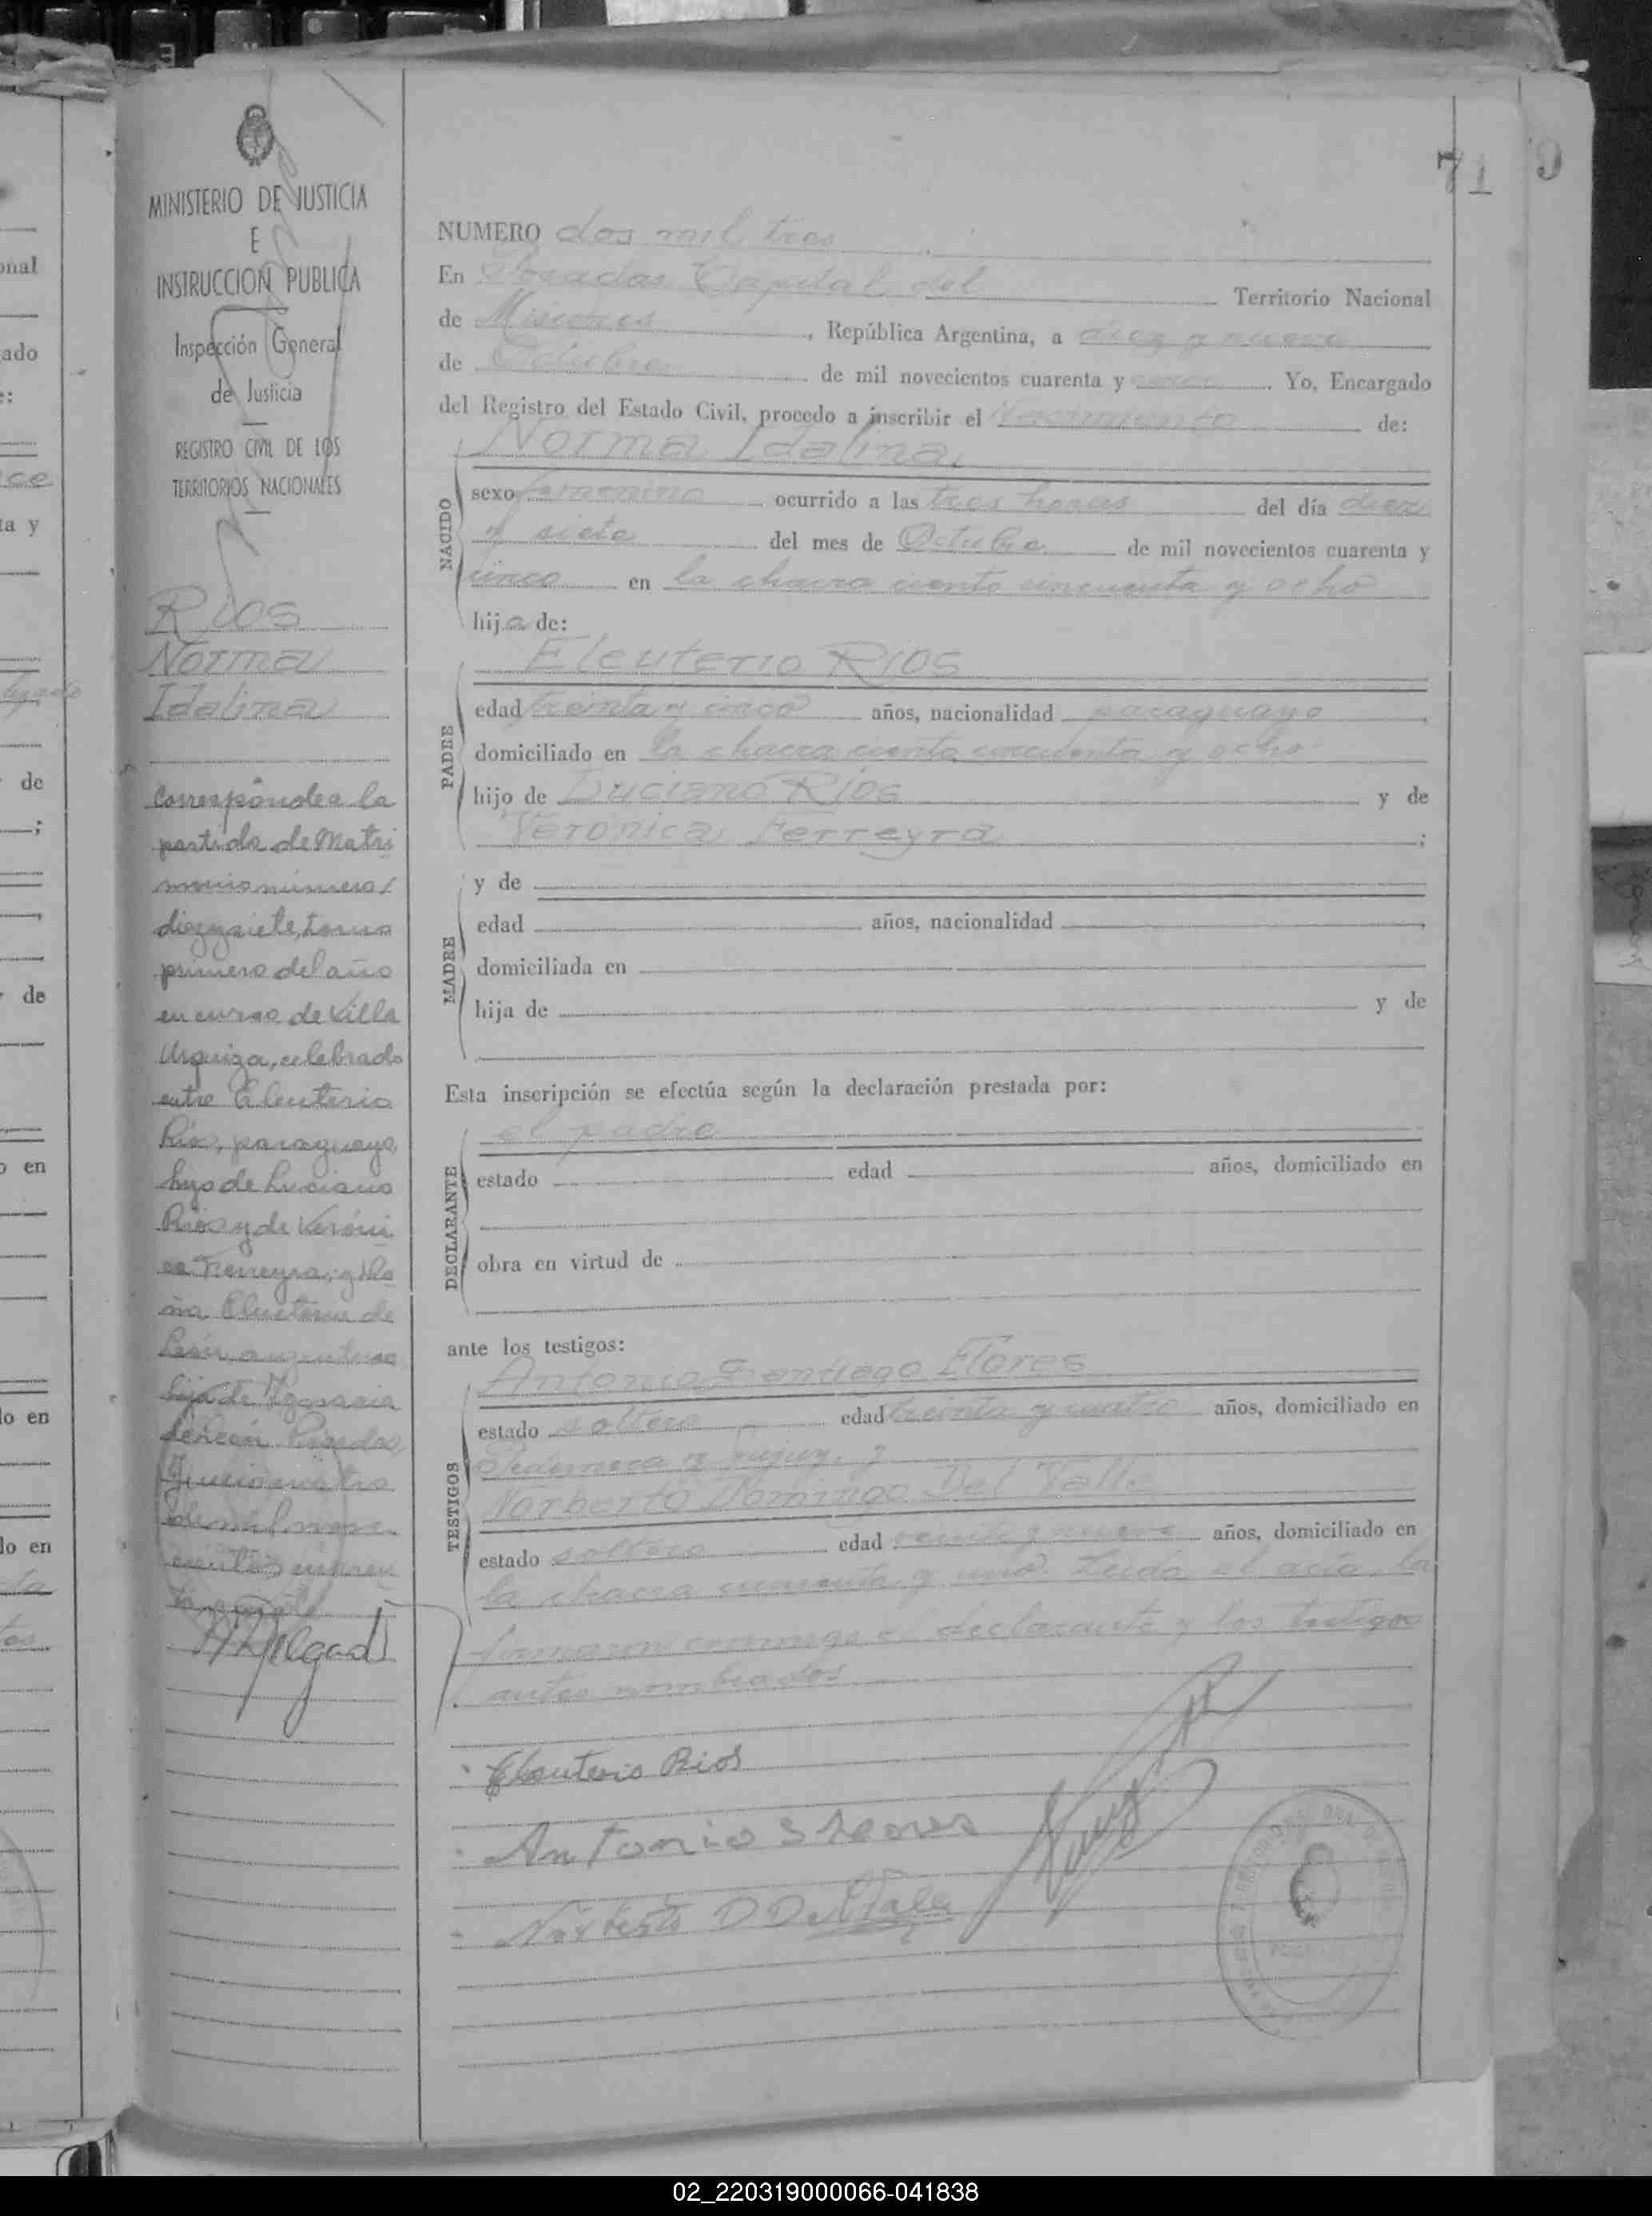 71
9
MINISTERIO DE JUSTICIA
E
INSTRUCCION PUBLICA
Inspección General
de Justicia
REGISTRO CIVIL DE LOS
TERRITORIOS NACIONALES
Rios
Norma
Idalina
Corresponde a la
partida de Matri
monio número/
diez y siete, tomo
primero del año
en curso de Villa
Urquiza, celebrado
entre Eleuterio
Ríos, paraguayo,
hijo de Luciano
Ríos y de Veróni
ca Ferreyra; y
Eleuteria de
León argentina
hija de Ignacia
de León. Posadas,
Junio cuatro
de mil nove
cientos cuaren
ta y
NUMERO dos mil tres
En Posadas Capital del Territorio Nacional
de Misiones, República Argentina, a diez y nueve
de Octubre de mil novecientos cuarenta y cinco. Yo, Encargado
del Registro del Estado Civil, procedo a inscribir el Nacimiento de:
Norma Idalina
NACIDO
sexo femenino ocurrido a las tres horas del día diez
y siete del mes de Octubre de mil novecientos cuarenta y
cinco en la chacra ciento cincuenta y ocho
hija de:
Eleuterio Rios
PADRE
edad treinta y cinco años, nacionalidad paraguayo
domiciliado en la chacra ciento cincuenta y ocho
hijo de Luciano Rios y de
Verónica Ferreyra;
MADRE
y de
edad años, nacionalidad
domiciliada en
hija de y de
Esta inscripción se efectúa según la declaración prestada por:
el padre
DECLARANTE
estado edad años, domiciliado en
obra en virtud de
ante los testigos:
Antonio Santiago Flores
TESTIGOS
estado soltero edad treinta y cuatro años, domiciliado en
Pedernera y Jujuy, y
Norberto Domingo Del Valle
estado soltero edad veinte y nueve años, domiciliado en
la chacra cuarenta y uno. Leida el acta, la
firmaron conmigo el declarante y los testigos
antes nombrados
Eleuterio Rios
Antonio S Flores
Norberto D Del Valle
02_220319000066-041838